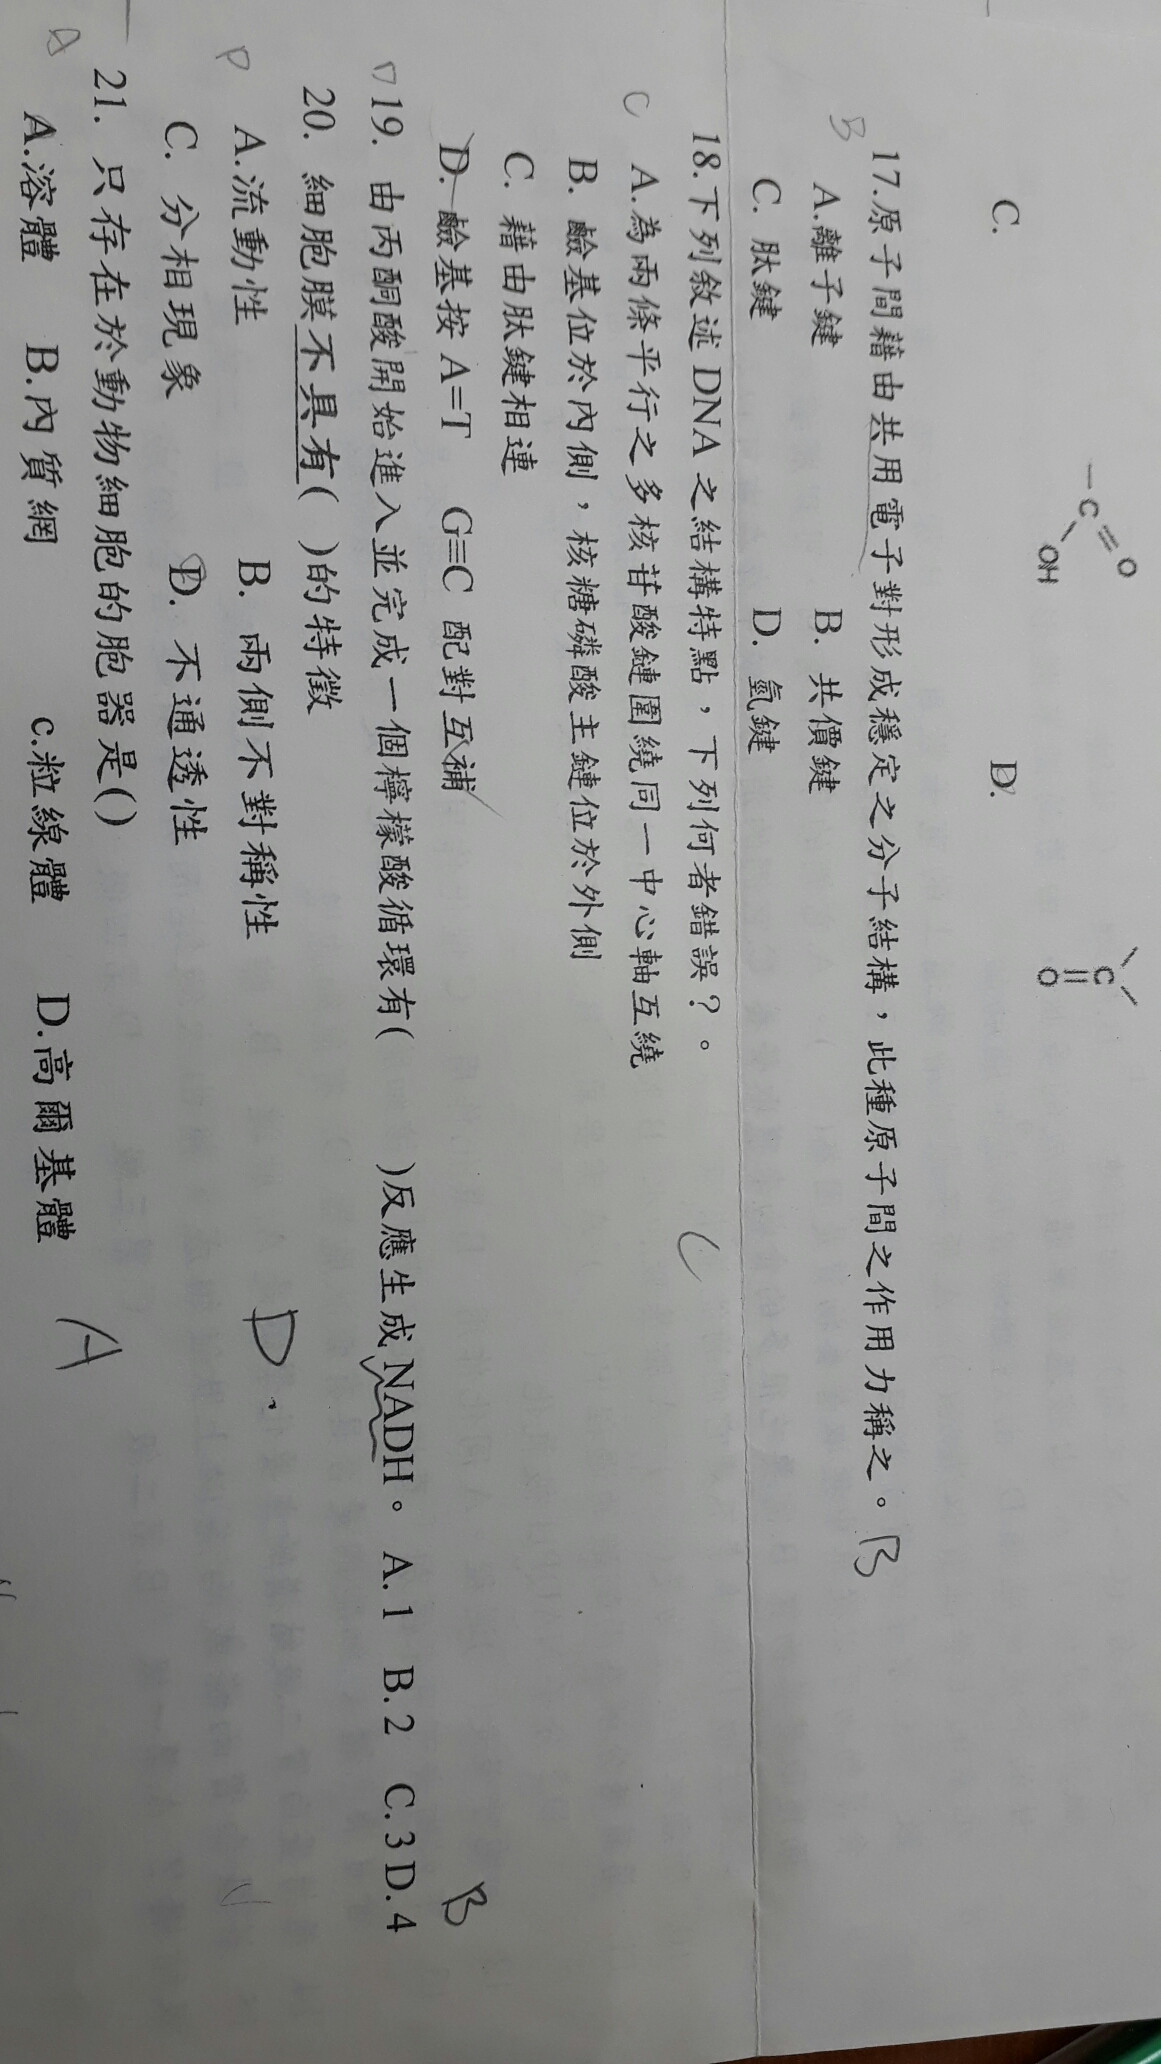 C.
D.
C O OH
C O
B 17.原子間藉由共用電子對形成穩定之分子結構，此種原子間之作用力稱之。 B
A.離子鍵 B. 共價鍵
C. 肽鍵 D. 氫鍵
18.下列敘述 DNA 之結構特點，下列何者錯誤？。 C
C A.為兩條平行之多核苷酸鏈圍繞同一中心軸互繞
B. 鹼基位於內側，核糖磷酸主鏈位於外側
C. 藉由肽鍵相連
D. 鹼基按 A=T G≡C 配對互補
D 19. 由丙酮酸開始進入並完成一個檸檬酸循環有( )反應生成 NADH。 A. 1 B. 2 C. 3 D. 4 B
20. 細胞膜不具有( )的特徵
A.流動性 B. 兩側不對稱性 D
C. 分相現象 D. 不通透性
21. 只存在於動物細胞的胞器是()
A.溶體 B.內質網 c.粒線體 D.高爾基體 A